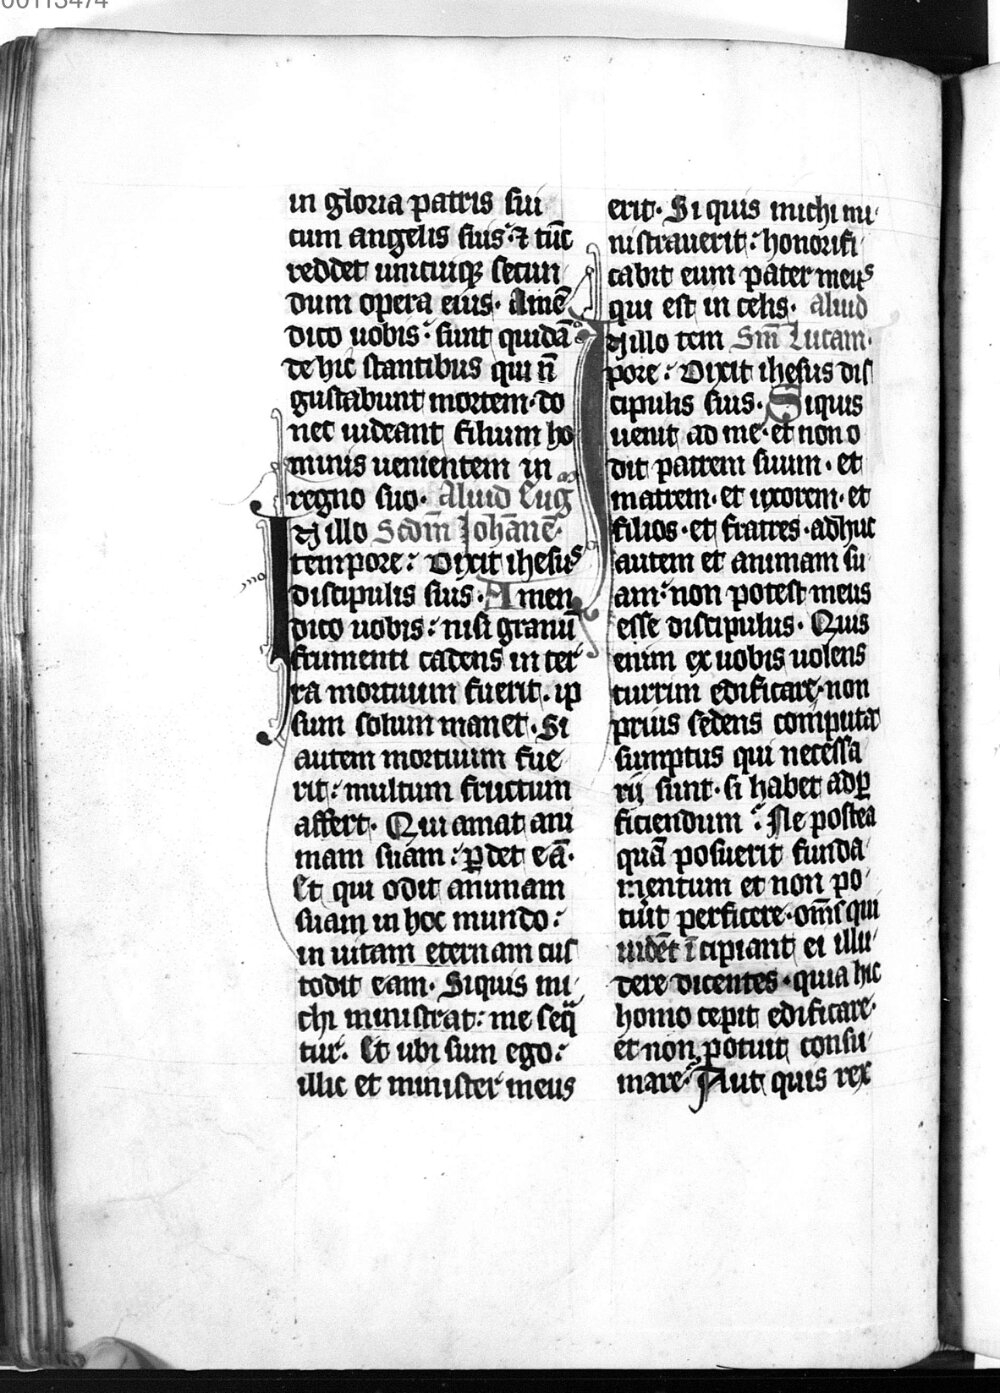 00113474
in gloria patris sui
cum angelis suis. ⁊ tūc
reddet unicuiqꝫ secun
dum opera eius. Amē
dico uobis. sunt quidā
de hic stantibus qui ñ
gustabunt mortem. do
nec uideant filium ho
minis uenientem in
regno suo. Aliud Eug̃
N illo Scdm̄ Johānē.
tempore. Dixit ihesus
discipulis suis. Amen
dico uobis. nisi granū
frumenti cadens in ter
ra mortuum fuerit. ip
sum solum manet. Si
autem mortuum fue
rit. multum fructum
affert. Qui amat ani
mam suam. ꝑdet eā.
Et qui odit animam
suam in hoc mundo.
in uitam eternam cus
todit eam. Siquis mi
chi ministrat. me seq̄
tur. Et ubi sum ego.
illic et minister meus
erit. Si quis michi mi
nistrauerit. honorifi
cabit eum pater meus
qui est in celis. Aliud
N illo tem Scm̄ Lucam.
pore. Dixit ihesus dis
cipulis suis. Siquis
uenit ad me. et non o
dit patrem suum. et
matrem. et uxorem. et
filios. et fratres. adhuc
autem et animam su
am. non potest meus
esse discipulus. Quis
enim ex uobis uolens
turrim edificare. non
prius sedens computat
sumptus qui necessa
rij sunt. si habet adꝑ
ficiendum. Ne postea
quā posuerit funda
mentum et non po
tuīt perficere. om̄s qui
uidēt īcipiant ei illu
dere dicentes. quia hic
homo cepit edificare.
et non potuit consu
mare. Aut quis rex